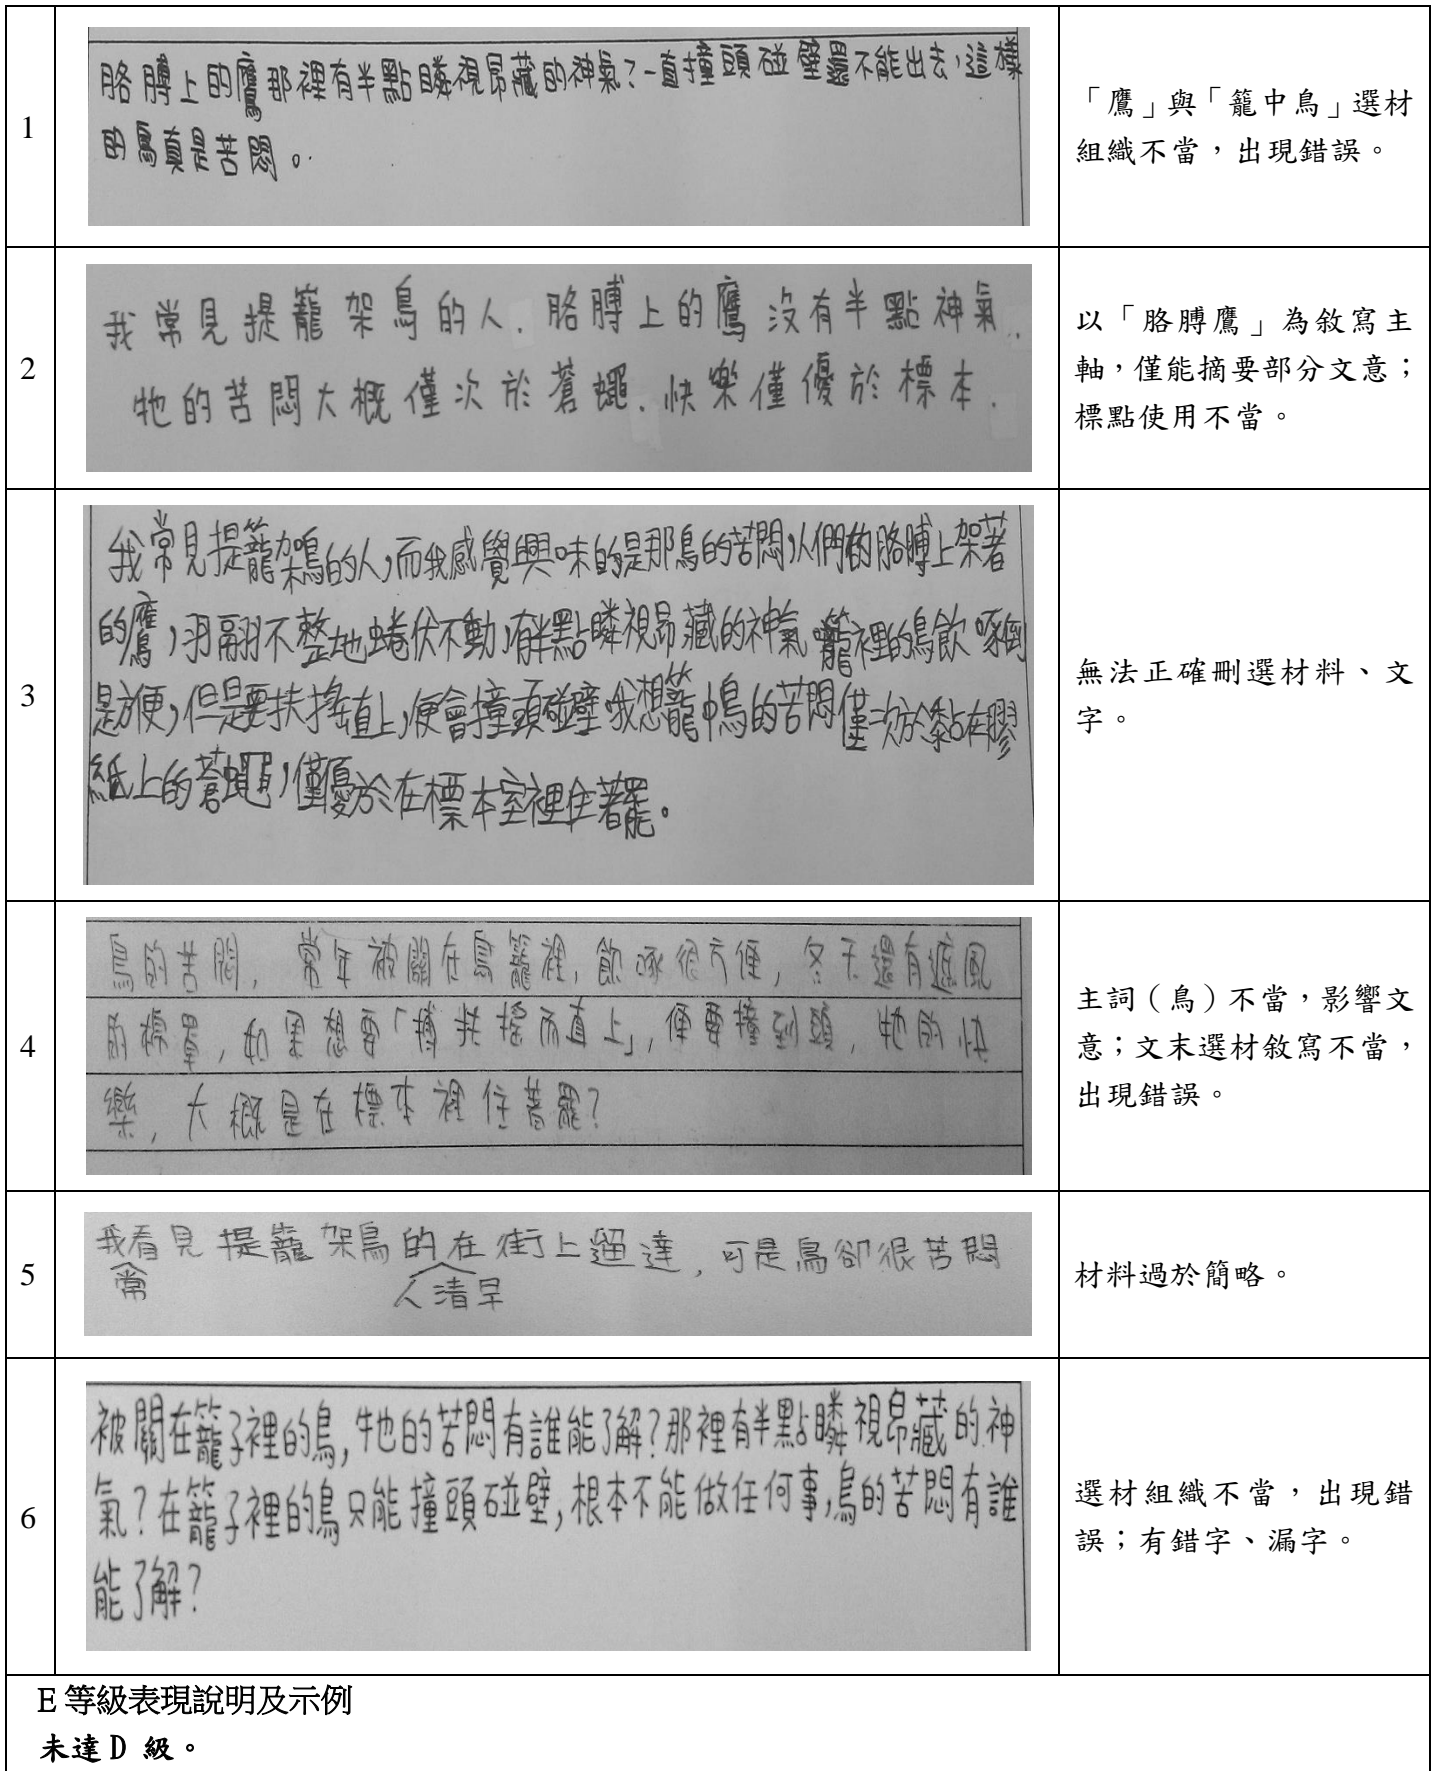 1
胳膊上的鷹那裡有半點瞵視昂藏的神氣?一直撞頭碰壁還不能出去,這樣
的鳥真是苦悶。
「鷹」與「籠中鳥」選材
組織不當,出現錯誤。
2
我常見提籠架鳥的人.胳膊上的鷹沒有半點神氣..
牠的苦悶大概僅次於蒼蠅.快樂僅優於標本.
以「胳膊鷹」為敘寫主
軸,僅能摘要部分文意;
標點使用不當。
3
我常見提籠架鳥的人,而我感覺興味的是那鳥的苦悶,人們的胳膊上架著
的鷹,羽翮不整地蜷伏不動,有半點瞵視昂藏的神氣 籠裡的鳥飲啄倒
是方便,但是要扶搖直上,便會撞頭碰壁 我想籠中鳥的苦悶僅次於黏在膠
紙上的蒼蠅,僅優於在標本室裡住著罷。
無法正確刪選材料、文
字。
4
鳥的苦悶, 常年被關在鳥籠裡,飲啄很方便,冬天還有遮風
的棉罩,如果想要「搏扶搖而直上」,便要撞到頭,牠的快
樂,大概是在標本裡住著罷?
主詞(鳥)不當,影響文
意;文末選材敘寫不當,
出現錯誤。
5
我看見提籠架鳥的在街上遛達,可是鳥卻很苦悶
常 人清早
材料過於簡略。
6
被關在籠子裡的鳥,牠的苦悶有誰能了解?那裡有半點瞵視昂藏的神
氣?在籠子裡的鳥只能撞頭碰壁,根本不能做任何事,鳥的苦悶有誰
能了解?
選材組織不當,出現錯
誤;有錯字、漏字。
E 等級表現說明及示例
未達 D 級。